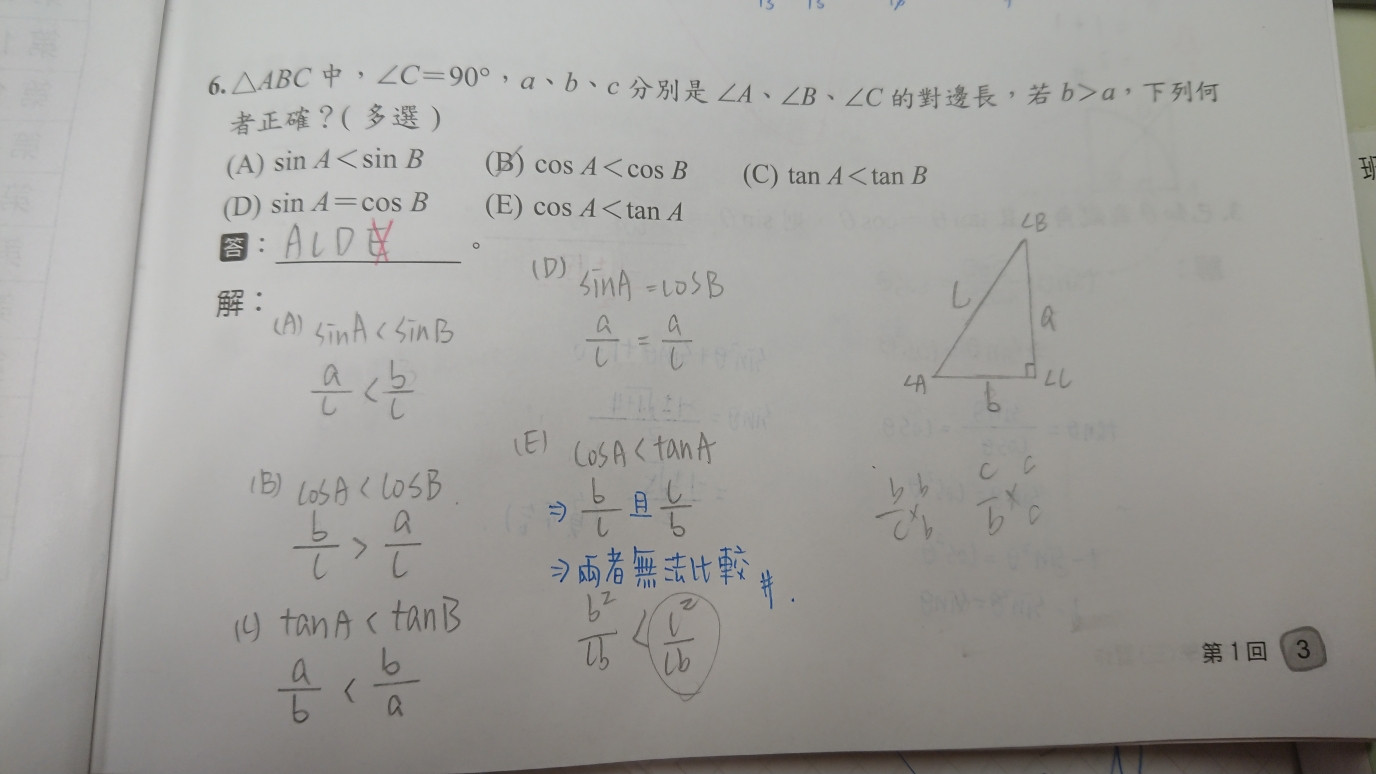 6. △ABC 中，∠C=90°，a、b、c 分別是 ∠A、∠B、∠C 的對邊長，若 b>a，下列何
者正確？( 多選 )
(A) sin A<sin B (B) cos A<cos B (C) tan A<tan B
(D) sin A=cos B (E) cos A<tan A
答：ACDE。
解：
(A) sinA < sinB
a/c < b/c
(B) cosA < cosB.
b/c > a/c
(C) tanA < tanB
a/b < b/a
(D) sinA = cosB
a/c = a/c
(E) cosA < tanA
⇒ b/c 且 c/b
⇒ 兩者無法比較 #.
b²/cb < c²/cb
∠B
c
a
∠A
∠C
b
b/c × b/b
c/b × c/c
第 1 回 3
班